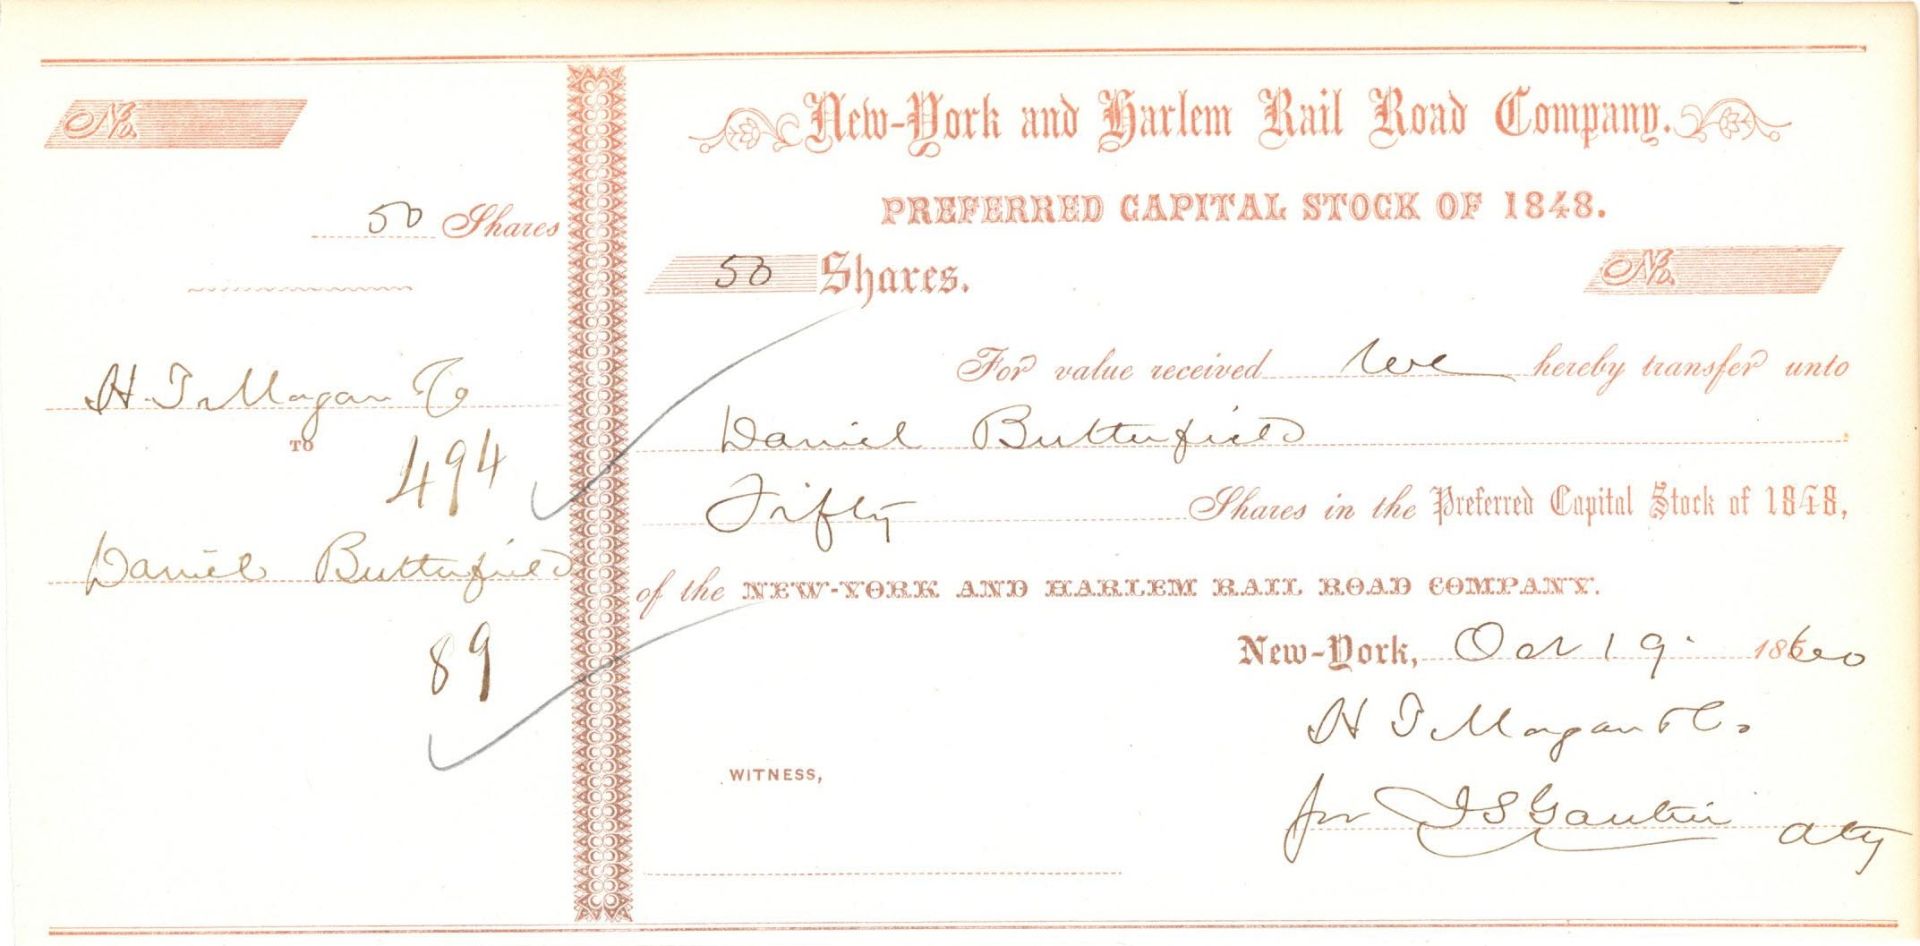 No.
50 Shares
H. T. Morgan & Co
TO
494
Daniel Butterfield
89
New-York and Harlem Rail Road Company.
PREFERRED CAPITAL STOCK OF 1848.
50 Shares. No.
For value received we hereby transfer unto
Daniel Butterfield
Fifty Shares in the Preferred Capital Stock of 1848,
of the NEW-YORK AND HARLEM RAIL ROAD COMPANY.
New-York, Oct 19 1860
H T Morgan & Co.
WITNESS,
for J S Gautier Atty